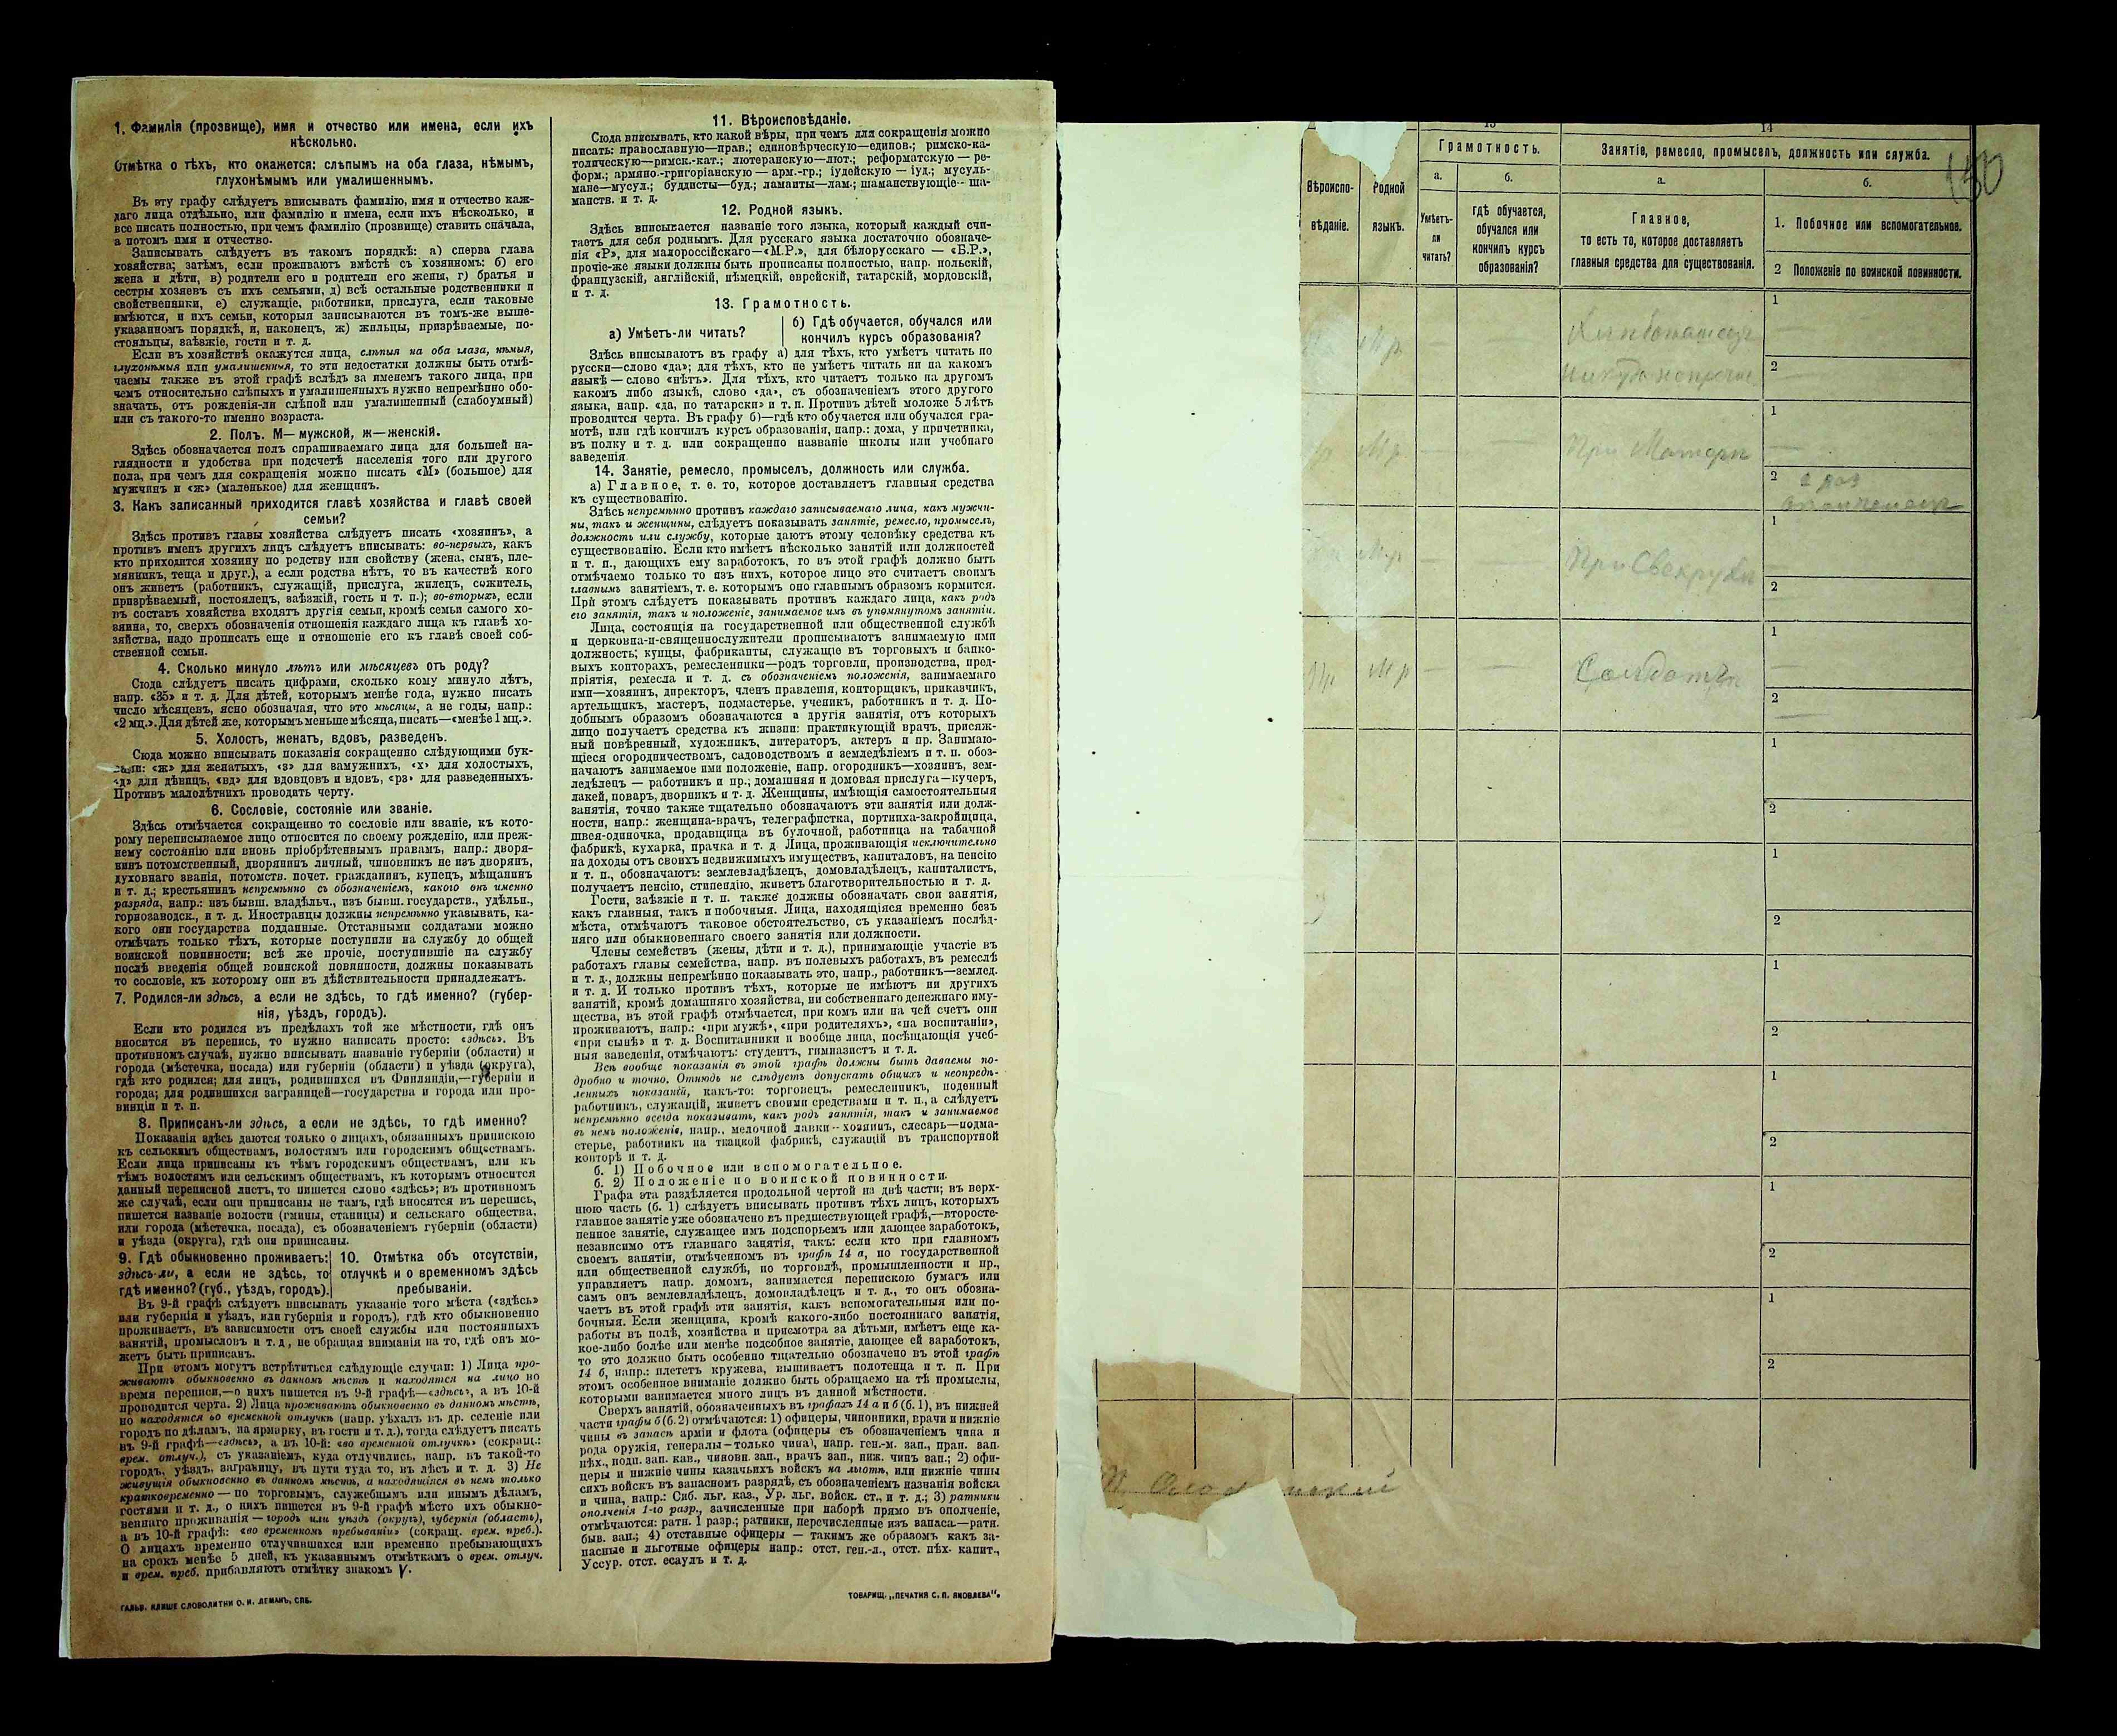 1. Фамилія (прозвище), имя и отчество или имена, если ихъ
нѣсколько.
Отмѣтка о тѣхъ, кто окажется: слѣпымъ на оба глаза, нѣмымъ,
глухонѣмымъ или умалишеннымъ.
Въ эту графу слѣдуетъ вписывать фамилію, имя и отчество каж-
даго лица отдѣльно, или фамилію и имена, если ихъ нѣсколько, и
все писать полностью, при чемъ фамилію (прозвище) ставить сначала,
а потомъ имя и отчество.
Записывать слѣдуетъ въ такомъ порядкѣ: а) сперва глава
хозяйства; затѣмъ, если проживаютъ вмѣстѣ съ хозяиномъ: б) его
жена и дѣти, в) родители его и родители его жены, г) братья и
сестры хозяевъ съ ихъ семьями, д) всѣ остальные родственники и
свойственники, е) служащіе, работники, прислуга, если таковые
имѣются, и ихъ семьи, которыя записываются въ томъ-же выше-
указанномъ порядкѣ, и, наконецъ, ж) жильцы, призрѣваемые, по-
стояльцы, заѣзжіе, гости и т. д.
Если въ хозяйствѣ окажутся лица, слѣпыя на оба глаза, нѣмыя,
глухонѣмыя или умалишенныя, то эти недостатки должны быть отмѣ-
чаемы также въ этой графѣ вслѣдъ за именемъ такого лица, при
чемъ относительно слѣпыхъ и умалишенныхъ нужно непремѣнно обо-
значать, отъ рожденія-ли слѣпой или умалишенный (слабоумный)
или съ такого-то именно возраста.
2. Полъ. М— мужской, ж—женскій.
Здѣсь обозначается полъ спрашиваемаго лица для большей на-
глядности и удобства при подсчетѣ населенія того или другого
пола, при чемъ для сокращенія можно писать «М» (большое) для
мужчинъ и «ж» (маленькое) для женщинъ.
3. Какъ записанный приходится главѣ хозяйства и главѣ своей
семьи?
Здѣсь противъ главы хозяйства слѣдуетъ писать «хозяинъ», а
противъ именъ другихъ лицъ слѣдуетъ вписывать: во-первыхъ, какъ
кто приходится хозяину по родству или свойству (жена, сынъ, пле-
мянникъ, теща и друг.), а если родства нѣтъ, то въ качествѣ кого
онъ живетъ (работникъ, служащій, прислуга, жилецъ, сожитель,
призрѣваемый, постоялецъ, заѣзжій, гость и т. п.); во-вторыхъ, если
въ составъ хозяйства входятъ другія семьи, кромѣ семьи самого хо-
зяина, то, сверхъ обозначенія отношенія каждаго лица къ главѣ хо-
зяйства, надо прописать еще и отношеніе его къ главѣ своей соб-
ственной семьи.
4. Сколько минуло лѣтъ или мѣсяцевъ отъ роду?
Сюда слѣдуетъ писать цифрами, сколько кому минуло лѣтъ,
напр. «35» и т. д. Для дѣтей, которымъ менѣе года, нужно писать
число мѣсяцевъ, ясно обозначая, что это мѣсяцы, а не годы, напр.:
«2 мц.». Для дѣтей же, которымъ меньше мѣсяца, писать—«менѣе 1 мц.».
5. Холостъ, женатъ, вдовъ, разведенъ.
Сюда можно вписывать показанія сокращенно слѣдующими бук-
вами: «ж» для женатыхъ, «з» для замужнихъ, «х» для холостыхъ,
«д» для дѣвицъ, «вд» для вдовцовъ и вдовъ, «рз» для разведенныхъ.
Противъ малолѣтнихъ проводить черту.
6. Сословіе, состояніе или званіе.
Здѣсь отмѣчается сокращенно то сословіе или званіе, къ кото-
рому переписываемое лицо относится по своему рожденію, или преж-
нему состоянію или вновь пріобрѣтеннымъ правамъ, напр.: дворя-
нинъ потомственный, дворянинъ личный, чиновникъ не изъ дворянъ,
духовнаго званія, потомств. почет. гражданинъ, купецъ, мѣщанинъ
и т. д.; крестьянинъ непремѣнно съ обозначеніемъ, какого онъ именно
разряда, напр.: изъ бывш. владѣльч., изъ бывш. государств., удѣльн.,
горнозаводск., и т. д. Иностранцы должны непремѣнно указывать, ка-
кого они государства подданные. Отставными солдатами можно
отмѣчать только тѣхъ, которые поступили на службу до общей
воинской повинности; всѣ же прочіе, поступившіе на службу
послѣ введенія общей воинской повинности, должны показывать
то сословіе, къ которому они въ дѣйствительности принадлежатъ.
7. Родился-ли здѣсь, а если не здѣсь, то гдѣ именно? (губер-
нія, уѣздъ, городъ).
Если кто родился въ предѣлахъ той же мѣстности, гдѣ онъ
вносится въ перепись, то нужно написать просто: «здѣсь». Въ
противномъ случаѣ, нужно вписывать названіе губерніи (области) и
города (мѣстечка, посада) или губерніи (области) и уѣзда (округа),
гдѣ кто родился; для лицъ, родившихся въ Финляндіи,—губерніи и
города; для родившихся заграницей—государства и города или про-
винціи и т. п.
8. Приписанъ-ли здѣсь, а если не здѣсь, то гдѣ именно?
Показанія здѣсь даются только о лицахъ, обязанныхъ припискою
къ сельскимъ обществамъ, волостямъ или городскимъ обществамъ.
Если лица приписаны къ тѣмъ городскимъ обществамъ, или къ
тѣмъ волостямъ или сельскимъ обществамъ, къ которымъ относится
данный переписной листъ, то пишется слово «здѣсь»; въ противномъ
же случаѣ, если они приписаны не тамъ, гдѣ вносятся въ перепись,
пишется названіе волости (гмины, станицы) и сельскаго общества,
или города (мѣстечка, посада), съ обозначеніемъ губерніи (области)
и уѣзда (округа), гдѣ они приписаны.
9. Гдѣ обыкновенно проживаетъ:
здѣсь-ли, а если не здѣсь, то
гдѣ именно? (губ., уѣздъ, городъ).
10. Отмѣтка объ отсутствіи,
отлучкѣ и о временномъ здѣсь
пребываніи.
Въ 9-й графѣ слѣдуетъ вписывать указаніе того мѣста («здѣсь»
или губернія и уѣздъ, или губернія и городъ), гдѣ кто обыкновенно
проживаетъ, въ зависимости отъ своей службы или постоянныхъ
занятій, промысловъ и т. д., не обращая вниманія на то, гдѣ онъ мо-
жетъ быть приписанъ.
При этомъ могутъ встрѣтиться слѣдующіе случаи: 1) Лица про-
живаютъ обыкновенно въ данномъ мѣстѣ и находятся на лицо во
время переписи,—о нихъ пишется въ 9-й графѣ—«здѣсь», а въ 10-й
проводится черта. 2) Лица проживаютъ обыкновенно въ данномъ мѣстѣ,
но находятся во временной отлучкѣ (напр. уѣхалъ въ др. селеніе или
городъ по дѣламъ, на ярмарку, въ гости и т. д.), тогда слѣдуетъ писать
въ 9-й графѣ—«здѣсь», а въ 10-й: «во временной отлучкѣ» (сокращ.:
врем. отлуч.), съ указаніемъ, куда отлучились, напр. въ такой-то
городъ, уѣздъ, заграницу, въ пути туда то, въ лѣсъ и т. д. 3) Не
живущія обыкновенно въ данномъ мѣстѣ, а находящіяся въ немъ только
кратковременно — по торговымъ, служебнымъ или инымъ дѣламъ,
гостями и т. д., о нихъ пишется въ 9-й графѣ мѣсто ихъ обыкно-
веннаго проживанія — городъ или уѣздъ (округъ), губернія (область),
а въ 10-й графѣ: «во временномъ пребываніи» (сокращ. врем. преб.).
О лицахъ временно отлучившихся или временно пребывающихъ
на срокъ менѣе 5 дней, къ указаннымъ отмѣткамъ о врем. отлуч.
и врем. преб. прибавляютъ отмѣтку знакомъ V.
ГАЛЬВ. КЛИШЕ СЛОВОЛИТНИ О. И. ЛЕМАНЪ, СПБ.
11. Вѣроисповѣданіе.
Сюда вписывать, кто какой вѣры, при чемъ для сокращенія можно
писать: православную—прав.; единовѣрческую—единов.; римско-ка-
толическую—римск.-кат.; лютеранскую—лют.; реформатскую — ре-
форм.; армяно.-григоріанскую — арм.-гр.; іудейскую — іуд.; мусуль-
мане—мусул.; буддисты—буд.; ламаиты—лам.; шаманствующіе-- ша-
манств. и т. д.
12. Родной языкъ.
Здѣсь вписывается названіе того языка, который каждый счи-
таетъ для себя роднымъ. Для русскаго языка достаточно обозначе-
нія «Р», для малороссійскаго—«М.Р.», для бѣлорусскаго — «Б.Р.»,
прочіе-же языки должны быть прописаны полностью, напр. польскій,
французскій, англійскій, нѣмецкій, еврейскій, татарскій, мордовскій,
и т. д.
13. Грамотность.
а) Умѣетъ-ли читать?
б) Гдѣ обучается, обучался или
кончилъ курсъ образованія?
Здѣсь вписываютъ въ графу а) для тѣхъ, кто умѣетъ читать по
русски—слово «да»; для тѣхъ, кто не умѣетъ читать ни на какомъ
языкѣ — слово «нѣтъ». Для тѣхъ, кто читаетъ только на другомъ
какомъ либо языкѣ, слово «да», съ обозначеніемъ этого другого
языка, напр. «да, по татарски» и т. п. Противъ дѣтей моложе 5 лѣтъ
проводится черта. Въ графу б)—гдѣ кто обучается или обучался гра-
мотѣ, или гдѣ кончилъ курсъ образованія, напр.: дома, у причетника,
въ полку и т. д. или сокращенно названіе школы или учебнаго
заведенія.
14. Занятіе, ремесло, промыселъ, должность или служба.
а) Главное, т. е. то, которое доставляетъ главныя средства
къ существованію.
Здѣсь непремѣнно противъ каждаго записываемаго лица, какъ мужчи-
ны, такъ и женщины, слѣдуетъ показывать занятіе, ремесло, промыселъ,
должность или службу, которые даютъ этому человѣку средства къ
существованію. Если кто имѣетъ нѣсколько занятій или должностей
и т. п., дающихъ ему заработокъ, то въ этой графѣ должно быть
отмѣчаемо только то изъ нихъ, которое лицо это считаетъ своимъ
главнымъ занятіемъ, т. е. которымъ оно главнымъ образомъ кормится.
При этомъ слѣдуетъ показывать противъ каждаго лица, какъ родъ
его занятія, такъ и положеніе, занимаемое имъ въ упомянутомъ занятіи.
Лица, состоящія на государственной или общественной службѣ
и церковно-и-священнослужители прописываютъ занимаемую ими
должность; купцы, фабриканты, служащіе въ торговыхъ и банко-
выхъ конторахъ, ремесленники—родъ торговли, производства, пред-
пріятія, ремесла и т. д. съ обозначеніемъ положенія, занимаемаго
ими—хозяинъ, директоръ, членъ правленія, конторщикъ, приказчикъ,
артельщикъ, мастеръ, подмастерье, ученикъ, работникъ и т. д. По-
добнымъ образомъ обозначаются и другія занятія, отъ которыхъ
лицо получаетъ средства къ жизни: практикующій врачъ, присяж-
ный повѣренный, художникъ, литераторъ, актеръ и пр. Занимаю-
щіеся огородничествомъ, садоводствомъ и земледѣліемъ и т. п. обоз-
начаютъ занимаемое ими положеніе, напр. огородникъ—хозяинъ, зем-
ледѣлецъ — работникъ и пр.; домашняя и домовая прислуга—кучеръ,
лакей, поваръ, дворникъ и т. д. Женщины, имѣющія самостоятельныя
занятія, точно также тщательно обозначаютъ эти занятія или долж-
ности, напр.: женщина-врачъ, телеграфистка, портниха-закройщица,
швея-одиночка, продавщица въ булочной, работница на табачной
фабрикѣ, кухарка, прачка и т. д Лица, проживающія исключительно
на доходы отъ своихъ недвижимыхъ имуществъ, капиталовъ, на пенсію
и т. п., обозначаютъ: землевладѣлецъ, домовладѣлецъ, капиталистъ,
получаетъ пенсію, стипендію, живетъ благотворительностью и т. д.
Гости, заѣзжіе и т. п. также должны обозначать свои занятія,
какъ главныя, такъ и побочныя. Лица, находящіяся временно безъ
мѣста, отмѣчаютъ таковое обстоятельство, съ указаніемъ послѣд-
няго или обыкновеннаго своего занятія или должности.
Члены семействъ (жены, дѣти и т. д.), принимающіе участіе въ
работахъ главы семейства, напр. въ полевыхъ работахъ, въ ремеслѣ
и т. д., должны непремѣнно показывать это, напр., работникъ—землед.
и т. д. И только противъ тѣхъ, которые не имѣютъ ни другихъ
занятій, кромѣ домашняго хозяйства, ни собственнаго денежнаго иму-
щества, въ этой графѣ отмѣчается, при комъ или на чей счетъ они
проживаютъ, напр.: «при мужѣ», «при родителяхъ», «на воспитаніи»,
«при сынѣ» и т. д. Воспитанники и вообще лица, посѣщающія учеб-
ныя заведенія, отмѣчаютъ: студентъ, гимназистъ и т. д.
Всѣ вообще показанія въ этой графѣ должны быть даваемы по-
дробно и точно. Отнюдь не слѣдуетъ допускать общихъ и неопредѣ-
ленныхъ показаній, какъ-то: торговецъ, ремесленникъ, поденный
работникъ, служащій, живетъ своими средствами и т. п., а слѣдуетъ
непремѣнно всегда показывать, какъ родъ занятія, такъ и занимаемое
въ немъ положеніе, напр., мелочной лавки--хозяинъ, слесарь—подма-
стерье, работникъ на ткацкой фабрикѣ, служащій въ транспортной
конторѣ и т. д.
б. 1) Побочное или вспомогательное.
б. 2) Положеніе по воинской повинности.
Графа эта раздѣляется продольной чертой на двѣ части; въ верх-
нюю часть (б. 1) слѣдуетъ вписывать противъ тѣхъ лицъ, которыхъ
главное занятіе уже обозначено въ предшествующей графѣ,—второсте-
пенное занятіе, служащее имъ подспорьемъ или дающее заработокъ,
независимо отъ главнаго занятія, такъ: если кто при главномъ
своемъ занятіи, отмѣченномъ въ графѣ 14 а, по государственной
или общественной службѣ, по торговлѣ, промышленности и пр.,
управляетъ напр. домомъ, занимается перепискою бумагъ или
самъ онъ землевладѣлецъ, домовладѣлецъ и т. д., то онъ обозна-
чаетъ въ этой графѣ эти занятія, какъ вспомогательныя или по-
бочныя. Если женщина, кромѣ какого-либо постояннаго занятія,
работы въ полѣ, хозяйства и присмотра за дѣтьми, имѣетъ еще ка-
кое-либо болѣе или менѣе подсобное занятіе, дающее ей заработокъ,
то это должно быть особенно тщательно обозначено въ этой графѣ
14 б, напр.: плететъ кружева, вышиваетъ полотенца и т. п. При
этомъ особенное вниманіе должно быть обращаемо на тѣ промыслы,
которыми занимается много лицъ въ данной мѣстности.
Сверхъ занятій, обозначенныхъ въ графахъ 14 а и б (б. 1), въ нижней
части графы б (б. 2) отмѣчаются: 1) офицеры, чиновники, врачи и нижніе
чины въ запасѣ арміи и флота (офицеры съ обозначеніемъ чина и
рода оружія, генералы—только чина), напр. ген.-м. зап., прап. зап.
пѣх., подп. зап. кав., чиновн. зап., врачъ зап., ниж. чинъ зап.; 2) офи-
церы и нижніе чины казачьихъ войскъ на льготѣ, или нижніе чины
сихъ войскъ въ запасномъ разрядѣ, съ обозначеніемъ названія войска
и чина, напр.: Сиб. льг. каз., Ур. льг. войск. ст., и т. д.; 3) ратники
ополченія 1-го разр., зачисленные при наборѣ прямо въ ополченіе,
отмѣчаются: ратн. 1 разр.; ратники, перечисленные изъ запаса.—ратн.
быв. зап.; 4) отставные офицеры — такимъ же образомъ какъ за-
пасные и льготные офицеры напр.: отст. ген.-л., отст. пѣх. капит.,
Уссур. отст. есаулъ и т. д.
ТОВАРИЩ. „ПЕЧАТНЯ С. П. ЯКОВЛЕВА“.
13
14
Вѣроиспо-
вѣданіе.
Родной
языкъ.
Грамотность.
а.
Умѣетъ-
ли
читать?
б.
гдѣ обучается,
обучался или
кончилъ курсъ
образованія?
Занятіе, ремесло, промыселъ, должность или служба.
а.
Главное,
то есть то, которое доставляетъ
главныя средства для существованія.
б.
1. Побочное или вспомогательное.
2 Положеніе по воинской повинности.
150
1
Мр
2
1
Мр
При Матери
2
1
Мр
При Свекрухи
2
1
Мр
Солдатъ
2
1
2
1
2
1
2
1
2
1
2
1
2